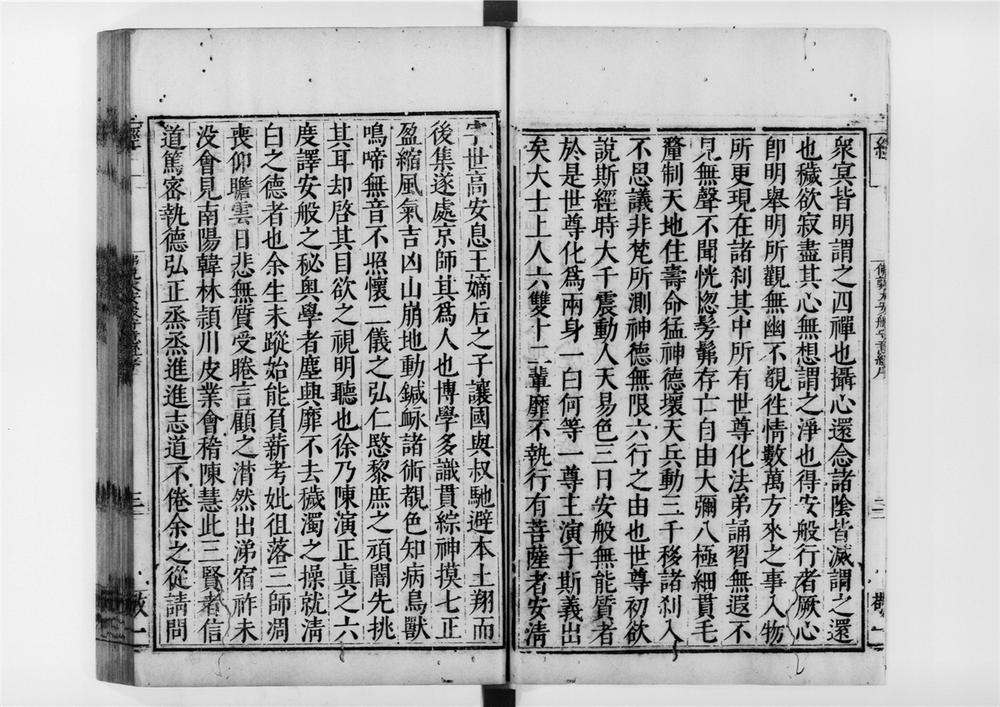 衆冥皆明謂之四禪也攝心還念諸陰皆滅謂之還
也穢欲寂盡其心無想謂之淨也得安般行者厥心
卽明舉明所觀無幽不覩徃情數萬方來之事人物
所更現在諸刹其中所有世尊化法弟誦習無遐不
見無聲不聞恍惚髣髴存亡自由大彌八極細貫毛
釐制天地住壽命猛神德壞天兵動三千移諸刹入
不思議非梵所測神德無限六行之由也世尊初欲
說斯經時大千震動人天易色三日安般無能質者
於是世尊化爲兩身一曰何等一尊主演于斯義出
矣大士上人六雙十二輩靡不執行有菩薩者安清
字世高安息王嫡后之子讓國與叔馳避本土翔而
後集遂處京師其爲人也博學多識貫綜神摸七正
盈縮風氣吉凶山崩地動鍼𧖴諸術覩色知病鳥獸
鳴啼無音不照懷二儀之弘仁愍黎庶之頑闇先挑
其耳却啓其目欲之視明聽也徐乃陳演正眞之六
度譯安般之秘奧學者塵興靡不去穢濁之操就清
白之德者也余生末蹤始能負薪考妣徂落三師凋
喪仰瞻雲日悲無質受睠言顧之潸然出涕宿祚未
没會見南陽韓林頴川皮業會稽陳慧此三賢者信
道篤密執德弘正烝烝進進志道不倦余之從請問